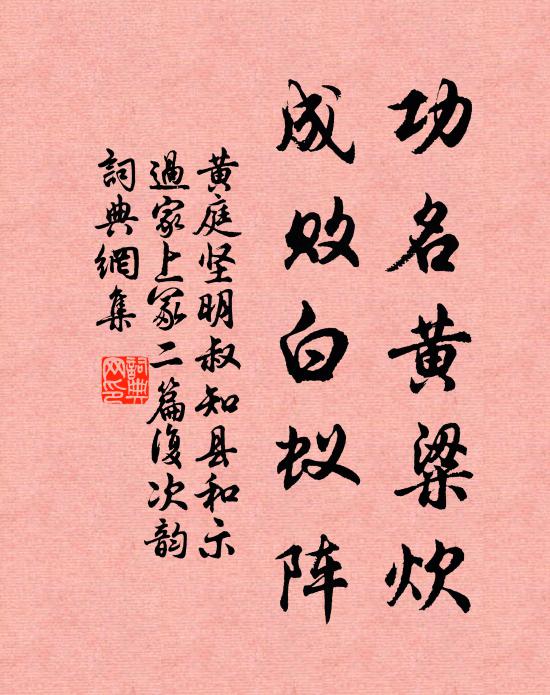 功名黄梁炊
成败白蚁阵
黄庭坚明叔知县和示
過家上冢二篇復次韵
詞典網集
詞典网印